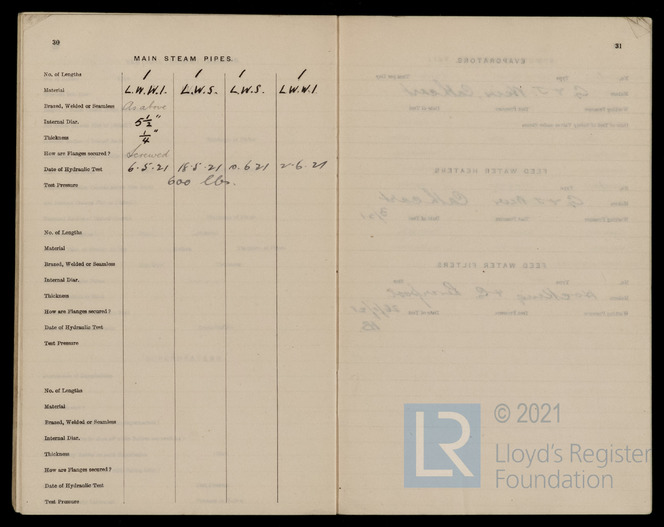 30
MAIN STEAM PIPES.
No. of Lengths 1 1 1 1
Material L.W.W.I. L.W.S. L.W.S. L.W.W.I.
Brazed, Welded or Seamless As above
Internal Diar. 5½"
Thickness ¼"
How are Flanges secured? Screwed
Date of Hydraulic Test 6.5.21 18.5.21 10.6.21 2.6.21
Test Pressure 600 lbs.
No. of Lengths
Material
Brazed, Welded or Seamless
Internal Diar.
Thickness
How are Flanges secured?
Date of Hydraulic Test
Test Pressure
No. of Lengths
Material
Brazed, Welded or Seamless
Internal Diar.
Thickness
How are Flanges secured?
Date of Hydraulic Test
Test Pressure
31
LR
© 2021
Lloyd's Register
Foundation